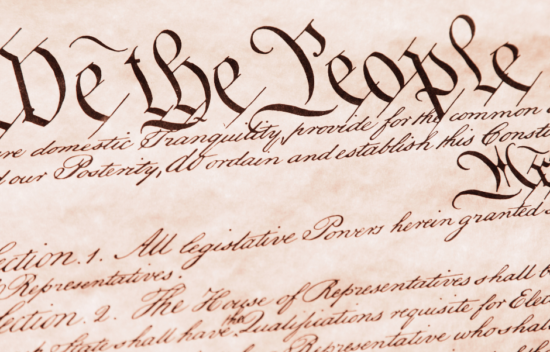 We the People
domestic Tranquility, provide for the common
our Posterity, do ordain and establish this
ection. 1. All legislative Powers herein granted
Representatives.
ection. 2. The House of Representatives shall b
State shall have the Qualifications requisite for Elec
Representative who shal